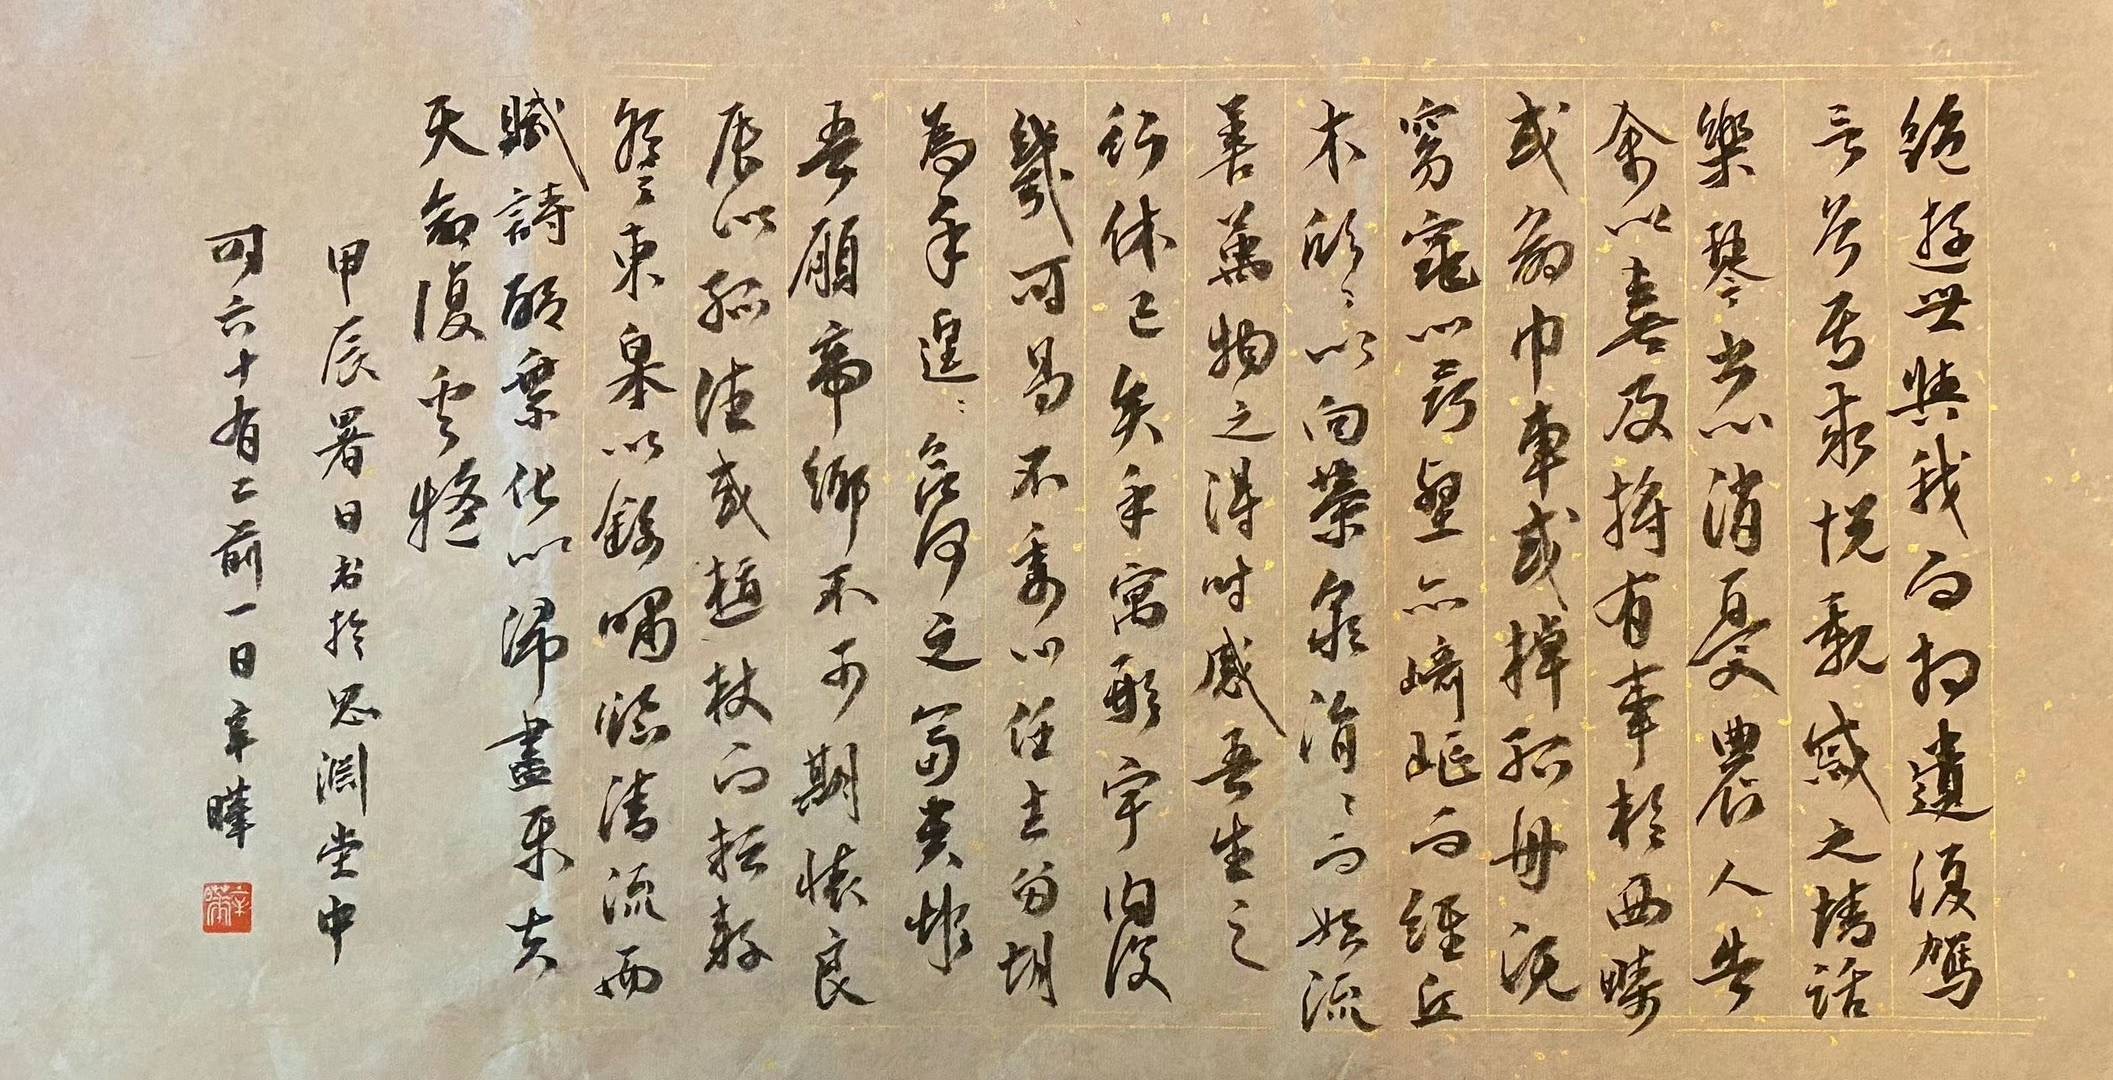 絕遊世與我而相遺復駕
言兮焉求悦親戚之情話
樂琴书以消憂農人告
余以春及將有事於西疇
或命巾車或棹孤舟既
窈窕以尋壑亦崎嶇而經丘
木欣〻以向榮泉涓〻而始流
善萬物之得时感吾生之
行休已矣乎寓形宇内復
幾时曷不委心任去留胡
為乎遑〻欲何之富貴非
吾願帝鄉不可期懷良
辰以孤往或植杖而耘耔
登東皋以舒嘯臨清流而
賦詩聊乘化以歸盡樂夫
天命復奚疑
甲辰暑日书於思淵堂中
时六十有二前一日辛曄
辛曄